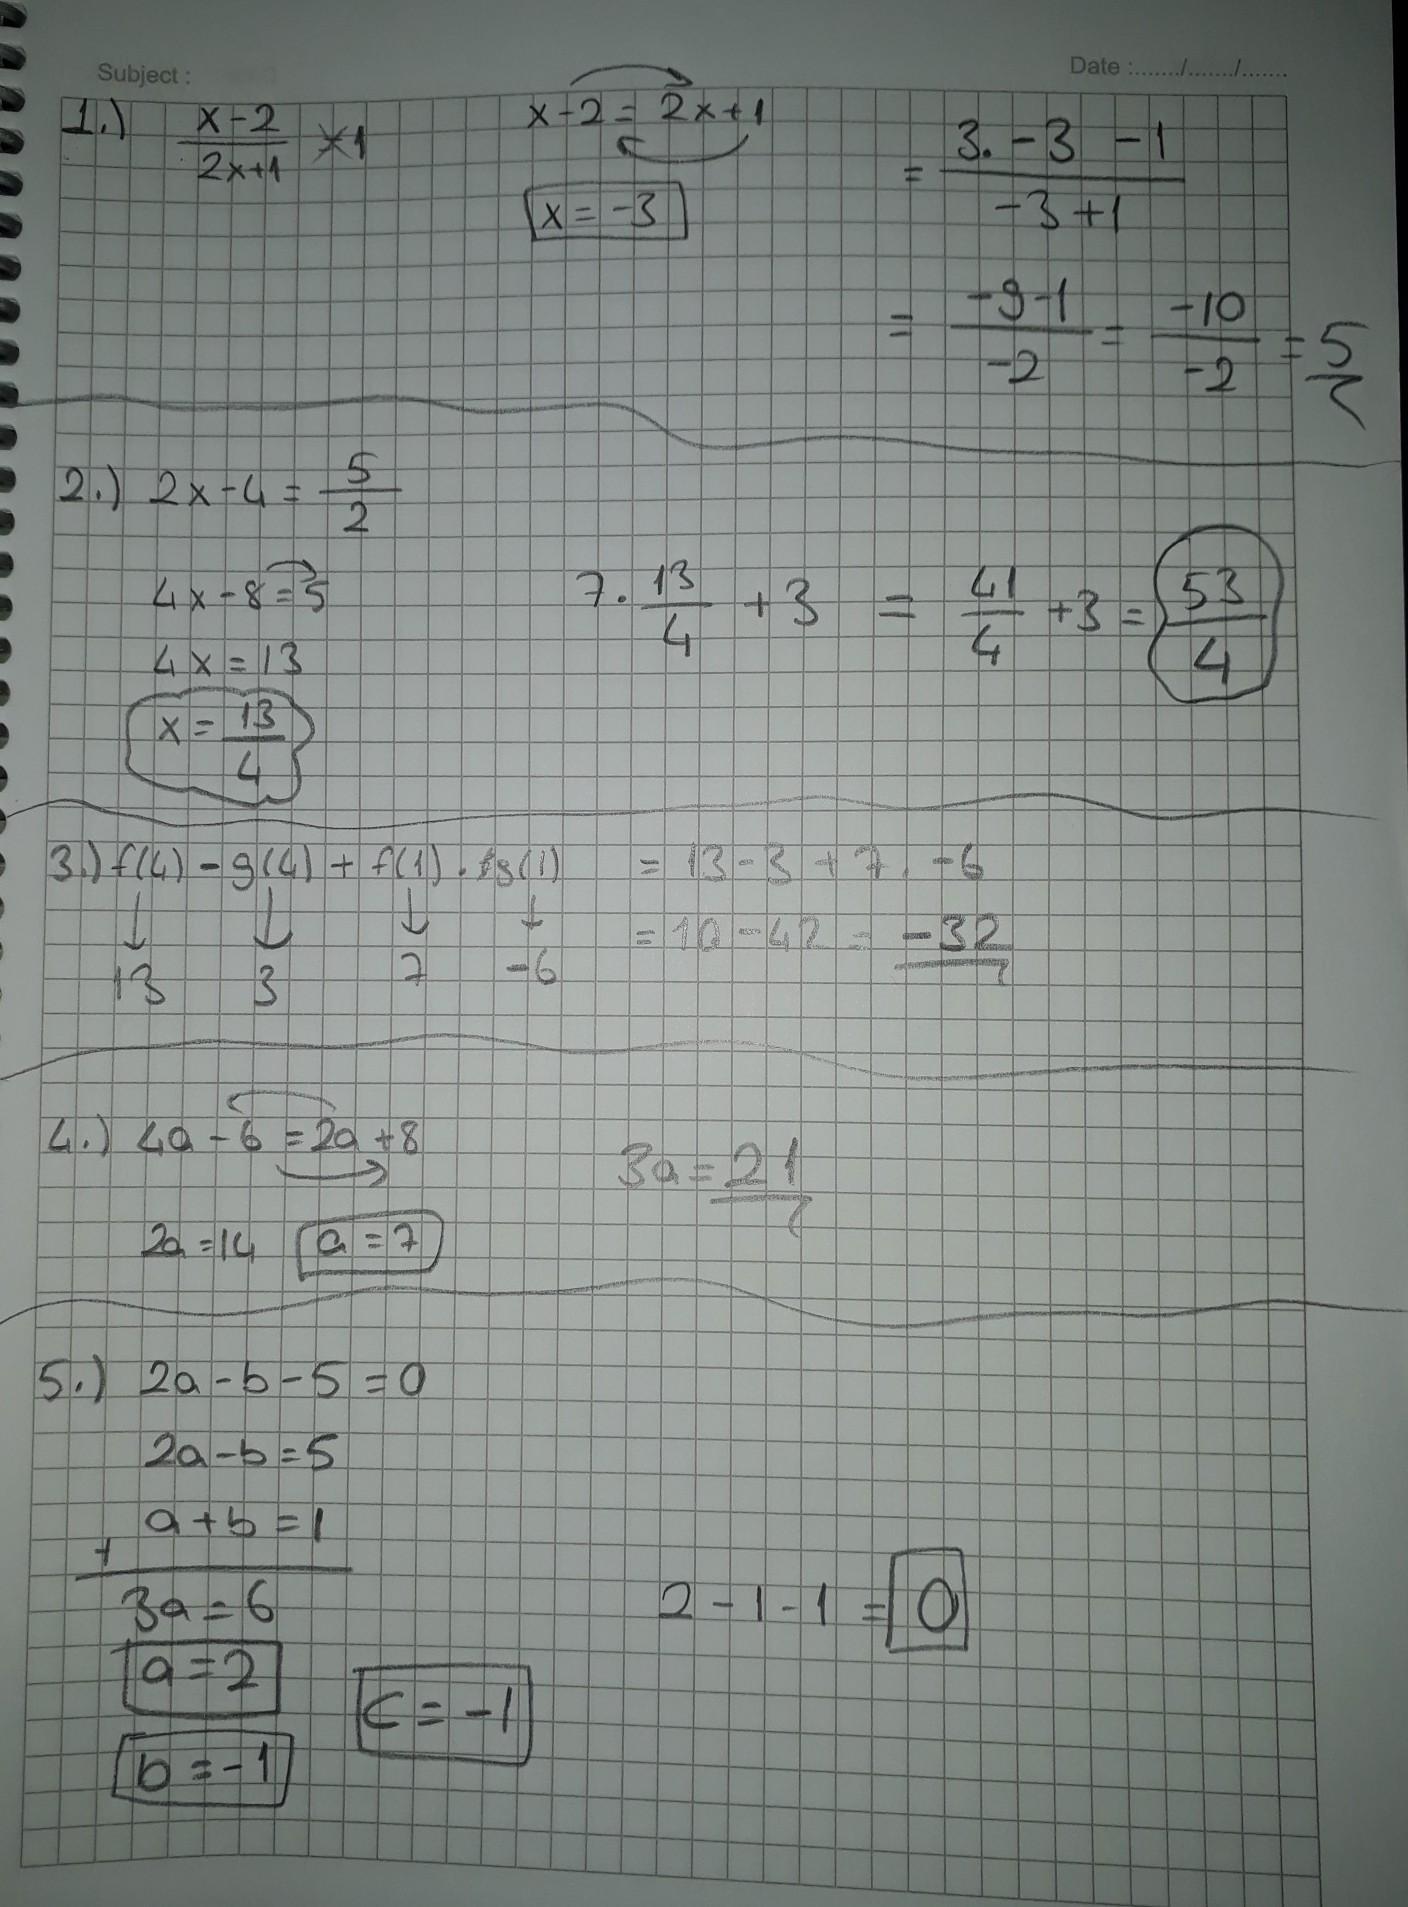 Subject :
Date :......./......./.......
1.) x-2 / 2x+1 × 1
x-2 = 2x+1
x = -3
= 3.-3 -1 / -3+1
= -9-1 / -2 = -10 / -2 = 5
2.) 2x-4 = 5/2
4x-8=5
4x=13
x = 13/4
7. 13/4 + 3 = 41/4 +3 = 53/4
3.) f(4) - g(4) + f(1) . g(1) = 13-3 +7. -6
13 3 7 -6
= 10-42 = -32
4.) 4a-6 =2a+8
2a=14 a=7
3a=21
5.) 2a-b-5=0
2a-b=5
a+b=1
+
3a=6
a=2
b=-1
c=-1
2-1-1 = 0